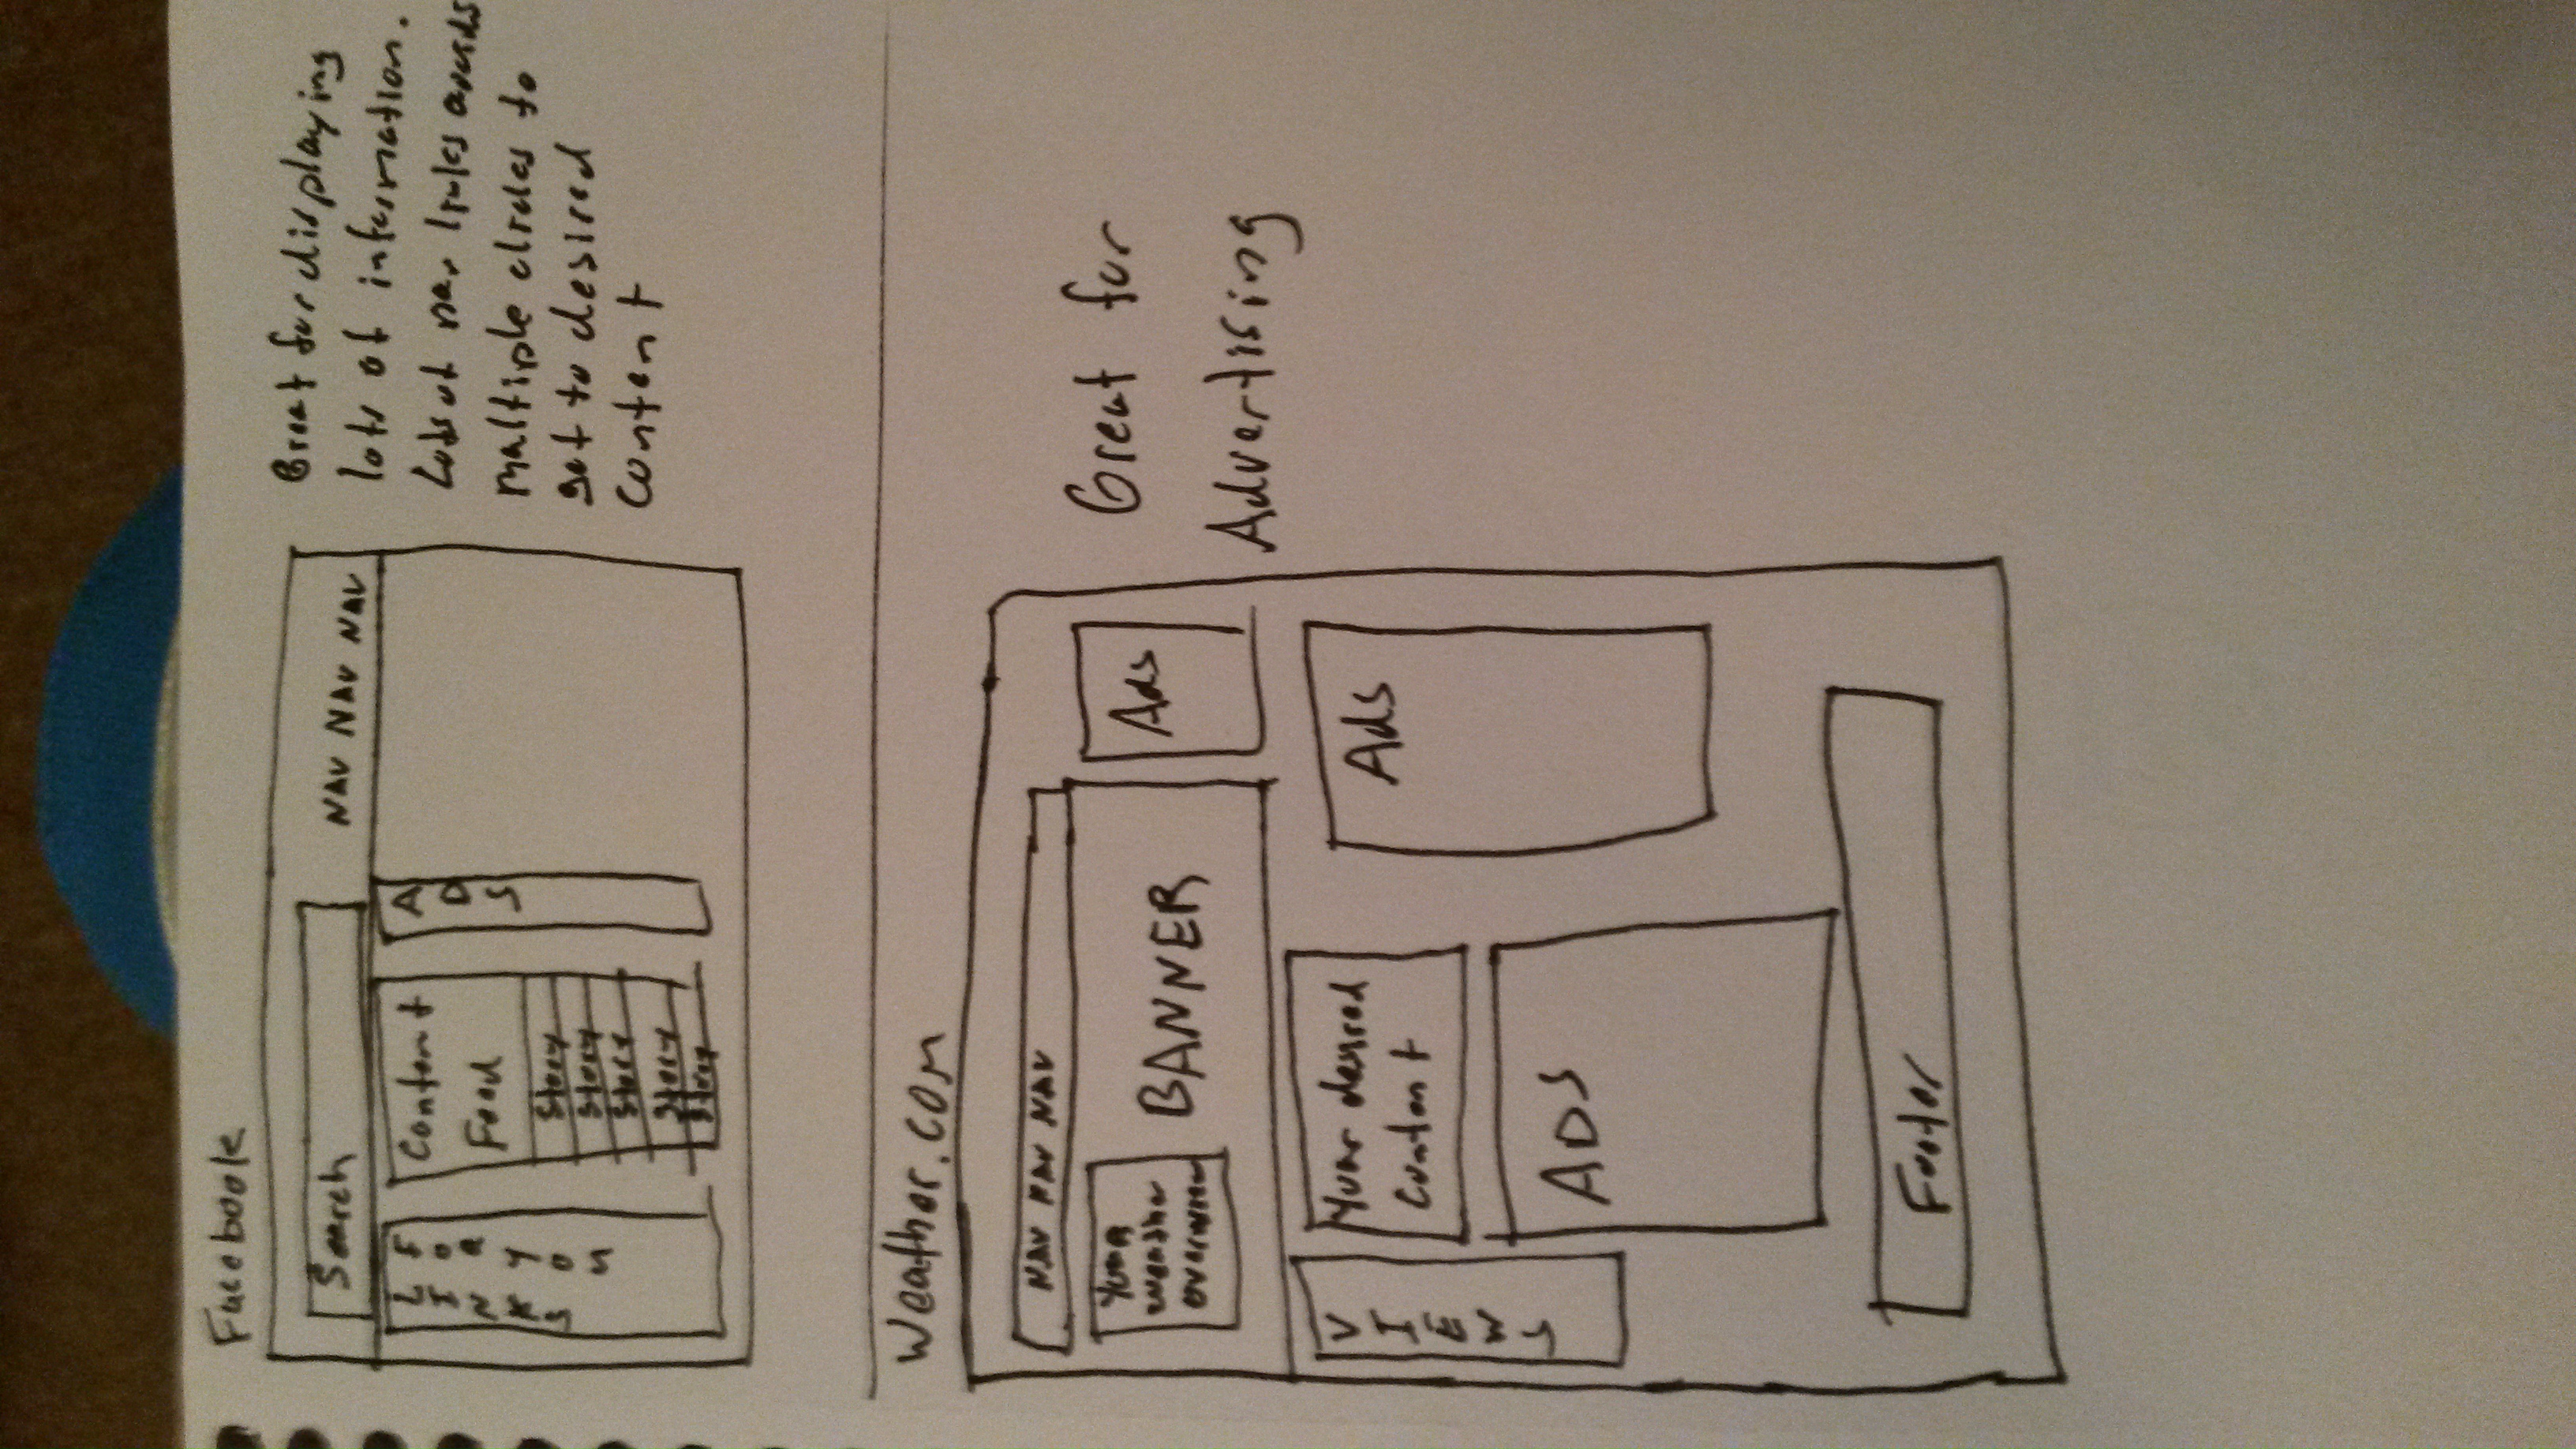 Facebook
Search
NAV NAV NAV
LINKS
FOR YOU
Content
Feed
Story
Story
Story
Story
Story
ADS
Great for displaying
lots of information.
Lots of nav links avoids
multiple clicks to
get to desired
content
Weather.com
NAV NAV NAV
Your
weather
overview
BANNER
Ads
Great for
Advertising
VIEWS
Your desired
content
Ads
ADS
Footer